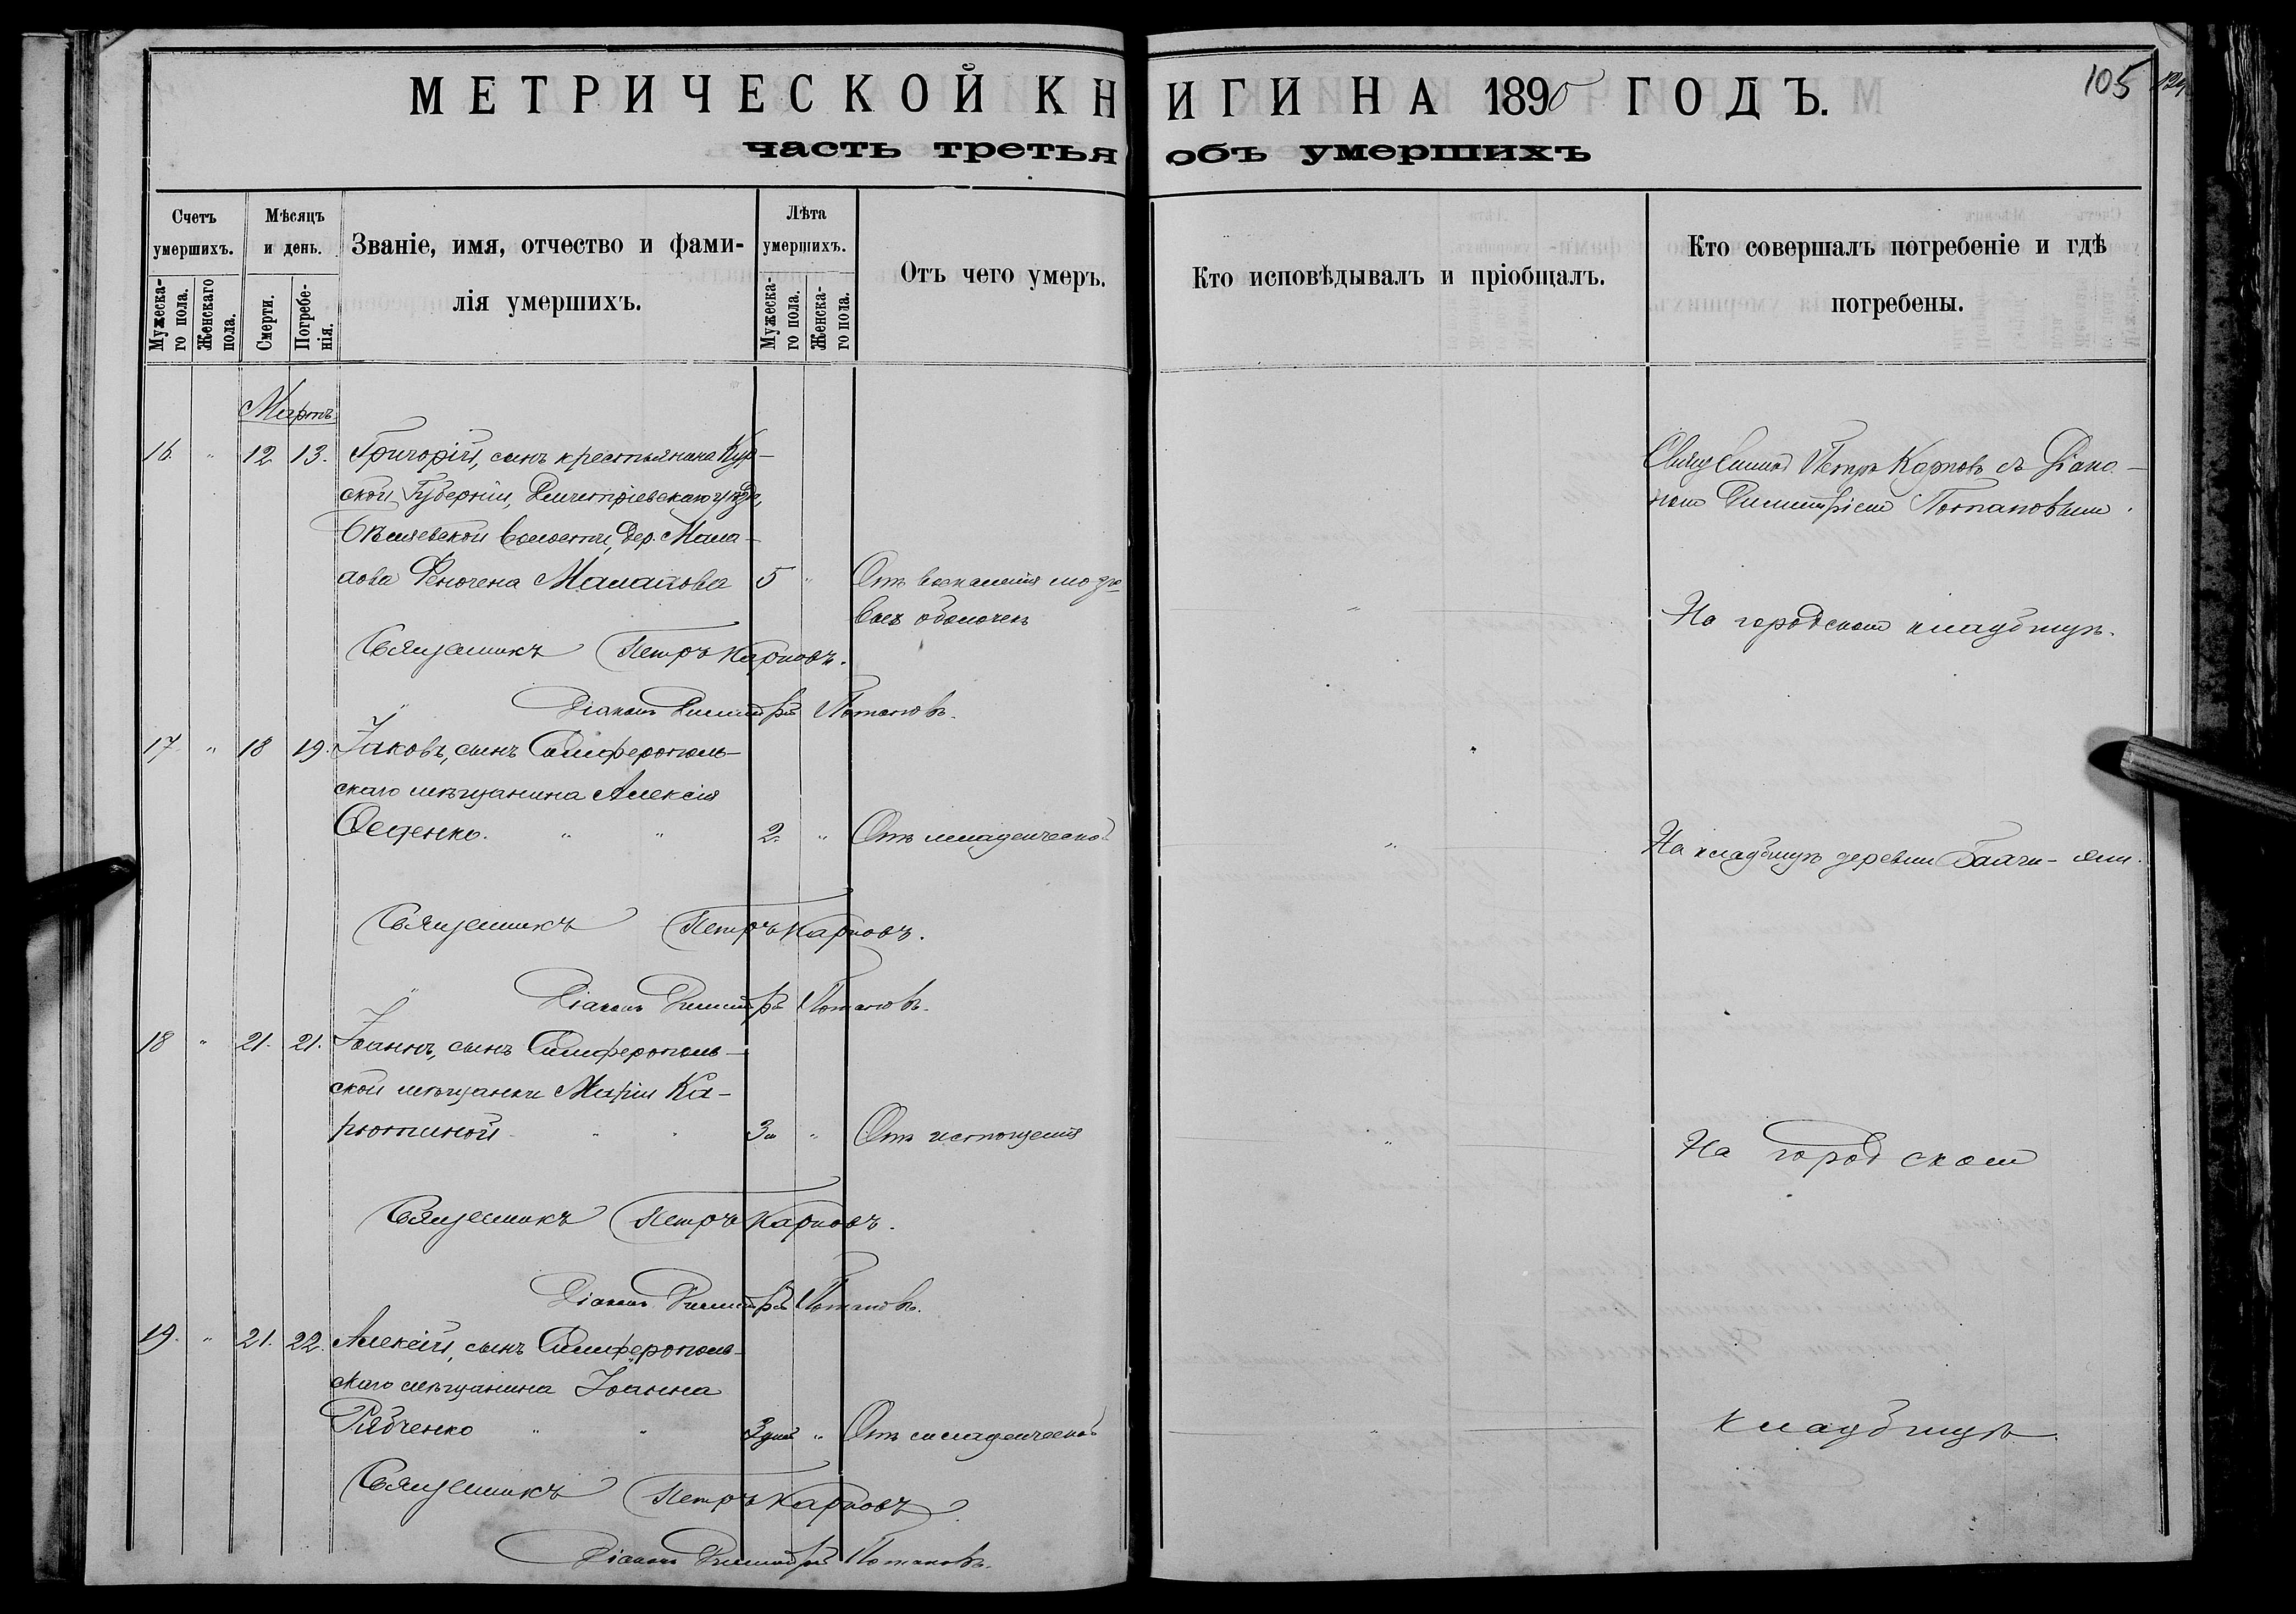 МЕТРИЧЕСКОЙ КНИГИ НА 1890 ГОДЪ.
105
часть третья объ умершихъ
Счетъ умершихъ.
Мужеска-го пола.
Женскаго пола.
Мѣсяцъ и день.
Смерти.
Погребе-нія.
Званіе, имя, отчество и фами-
лія умершихъ.
Лѣта умершихъ.
Мужеска-го пола.
Женска-го пола.
Отъ чего умеръ.
Кто исповѣдывалъ и пріобщалъ.
Кто совершалъ погребеніе и гдѣ
погребены.
Мартъ
16. " 12 13. Григорій, сынъ крестьянина Кур-
ской Губерніи, Дмитріевскаго уѣзда,
волости, дер. Мала-
5 " Отъ воспаленія мозго-
выхъ оболочекъ
Священникъ Петръ Карповъ съ Діако-
номъ Димитріемъ Потаповымъ.
На городскомъ кладбищѣ.
Священникъ Петръ Карповъ.
Діаконъ Димитрій Потаповъ.
17 " 18 19. Іаковъ, сынъ Симферополь-
скаго мѣщанина Алексія
Феденко. " " 2. " Отъ младенческой
На кладбищѣ деревни Бахчи-эли.
Священникъ Петръ Карповъ.
Діаконъ Димитрій Потаповъ.
18 " 21. 21. Іоаннъ, сынъ Симферополь-
ской мѣщанки Маріи Ка-
рютиной " " 3 " Отъ истощенія
На городскомъ
Священникъ Петръ Карповъ.
Діаконъ Димитрій Потаповъ.
19. " 21. 22. Алексій, сынъ Симферополь-
скаго мѣщанина Іоанна
Рябченко " " 3 дней " Отъ младенческой
кладбищѣ.
Священникъ Петръ Карповъ.
Діаконъ Димитрій Потаповъ.